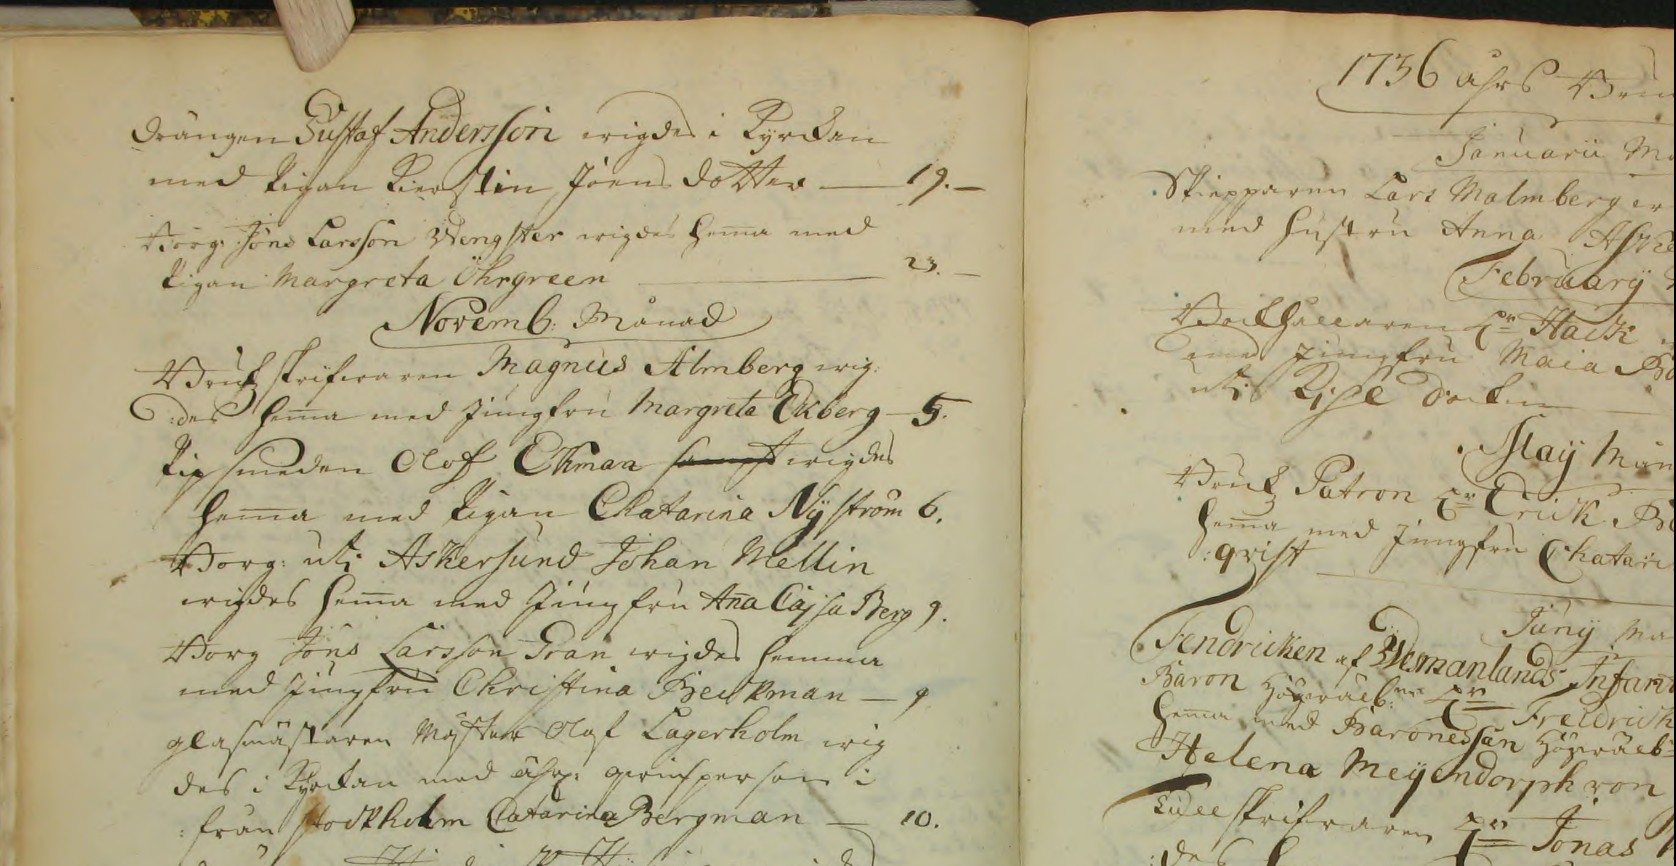 drängen Gustaf Andersson wigdes i Kyrckan
med Pigan Kierstin Joens dotter — 19. —
Borg: Jöns Larsson Wengster wigdes hema med
Pigan Margreta Öhrgreen — 23. —
Novemb: Månad
Bruks skrifwaren Magnus Almberg wig:
:des hema med Jungfru Margreta Ekberg — 5.
smeden Olof Ekman wigdes
hema med Pigan Chatarina Nyström 6.
Borg: uti Askersund Johan Mellin
wigdes hema med Jungfru Ana Cajsa Berg 9.
Borg Jöns Larsson Tran wigdes hemma
med Jungfru Christina Beckman — 9
glasmästaren Mäster Olof Lagerholm wig
des i Kyrckan med qwinsperson i
:från Stockholm Catarina Bergman — 10.
1736 åhrs
Januarii
Skiepparen Lars Malmberg
med hustru Anna
February
Bockhållaren Hr Hack
med Jungfru Maia
uti
Maij
Bruks Patron Hr Erick
hema med Jungfru Chatari
:qvist
Junij
Fendricken af Wesmanlands Infan
Baron Högwälb: Hr Fredrick
hema med Baronessan Högwälb:
Helena Meijendorph von
skrifwaren Hr Jonas
:des